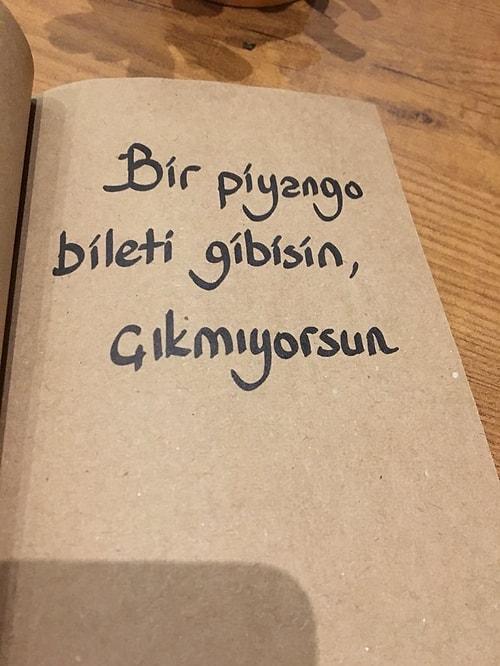 Bir piyango
bileti gibisin,
Çıkmıyorsun